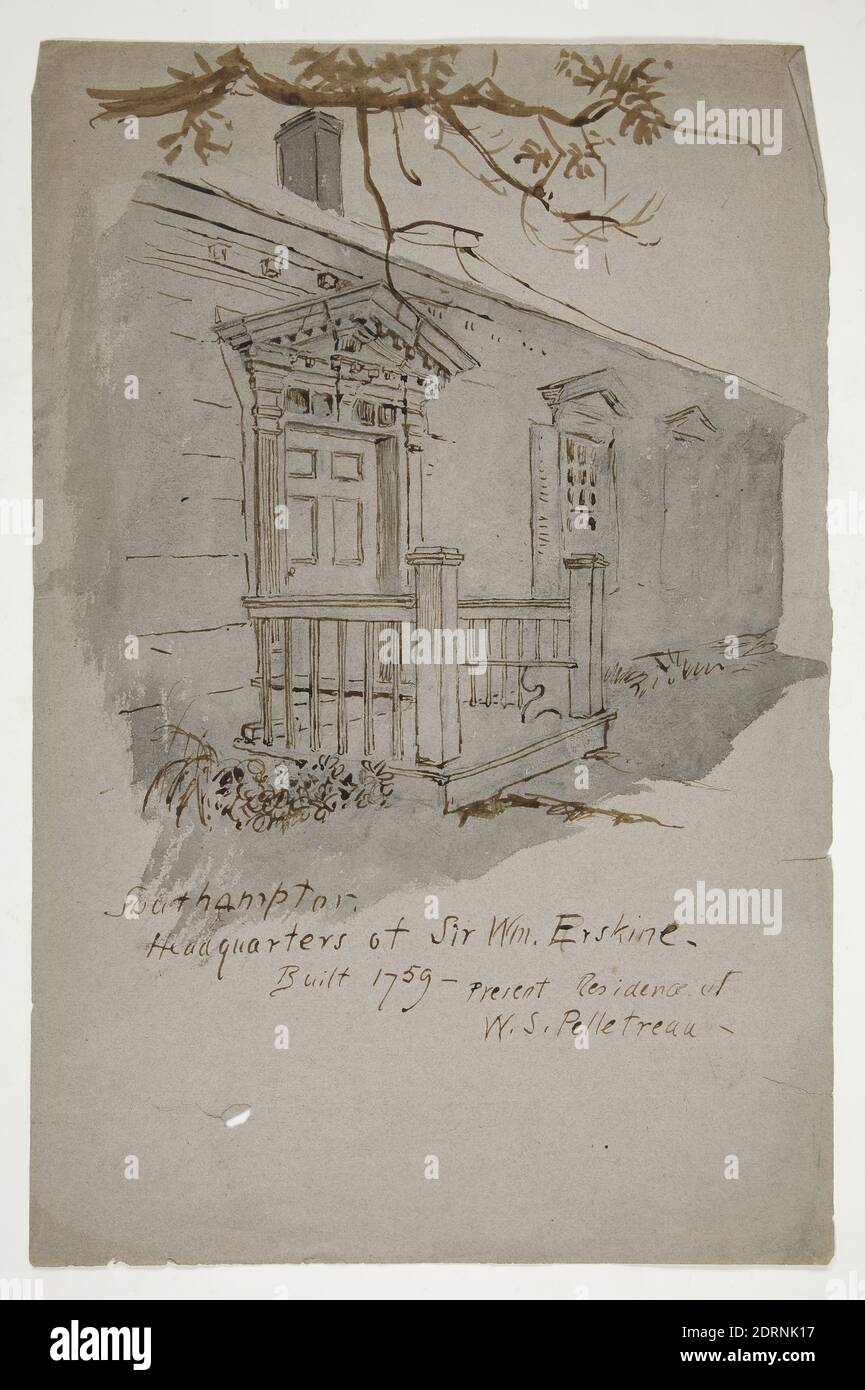 Southampton.
Headquarters of Sir Wm. Erskine.
Built 1759 - Present Residence of
W. S. Pelletreau -
alamy
a
a
a
a
a
a
a
a
a
alamy
Image ID: 2DRNK17
www.alamy.com